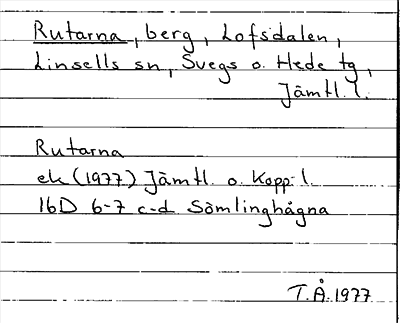 Rutarna, berg, Lofsdalen,
Linsells sn, Svegs o. Hede tg,
Jämtl. l.
Rutarna
ek (1977) Jämtl. o. Kopp. l.
16D 6-7 c-d Sömlinghågna
T.Å. 1977